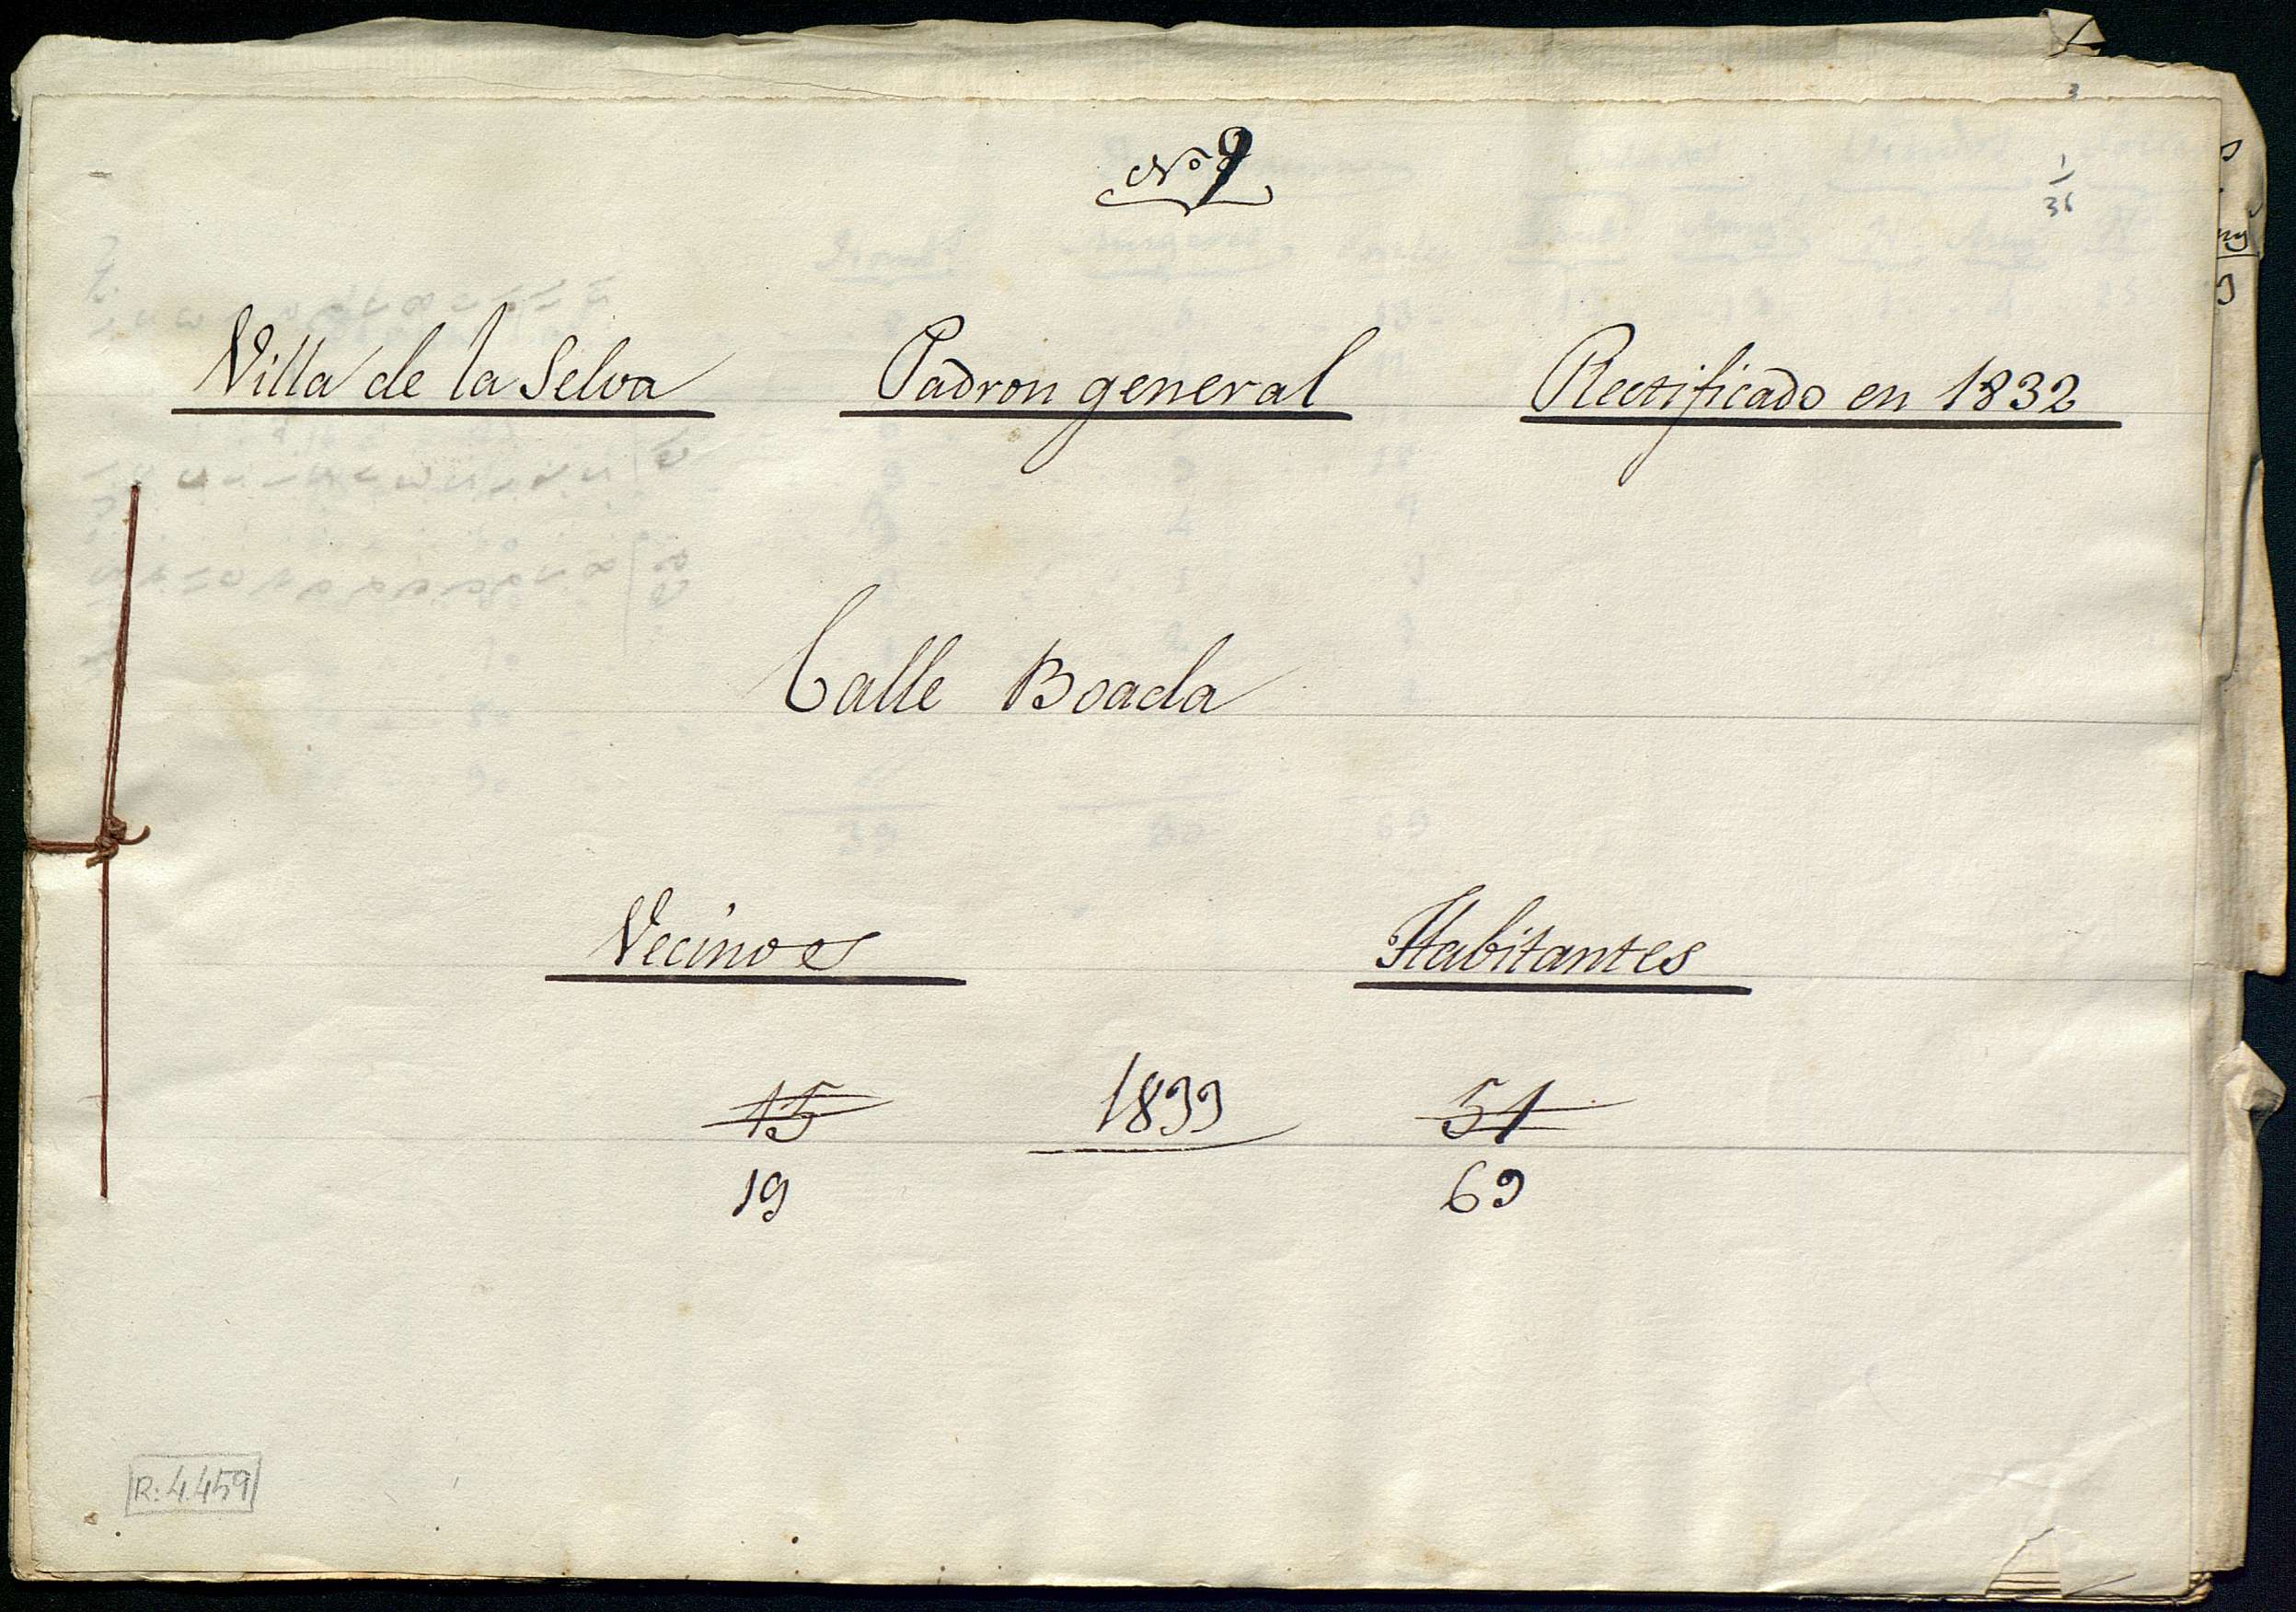 Nº 9
3
1
36
Villa de la Selva Padron general Rectificado en 1832
Calle Boada
Vecinos Habitantes
15 1833 51
19 69
R: 4.459